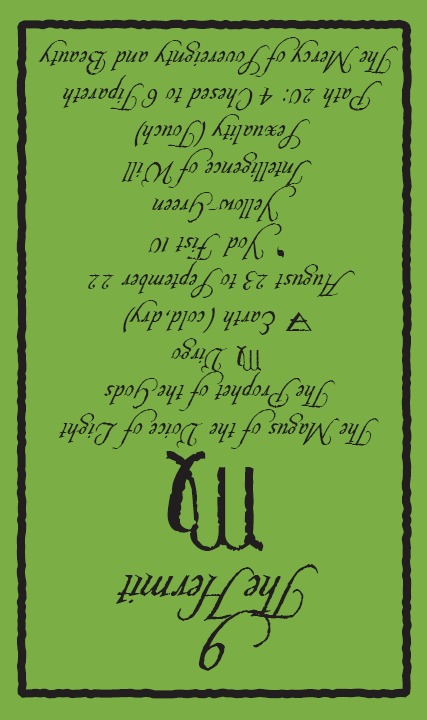 9
The Hermit
♍
The Magus of the Voice of Light
The Prophet of the Gods
♍ Virgo
🜃 Earth (cold,dry)
August 23 to September 22
י Yod Fist 10
Yellow-Green
Intelligence of Will
Sexuality (Touch)
Path 20: 4 Chesed to 6 Tipareth
The Mercy of Sovereignty and Beauty